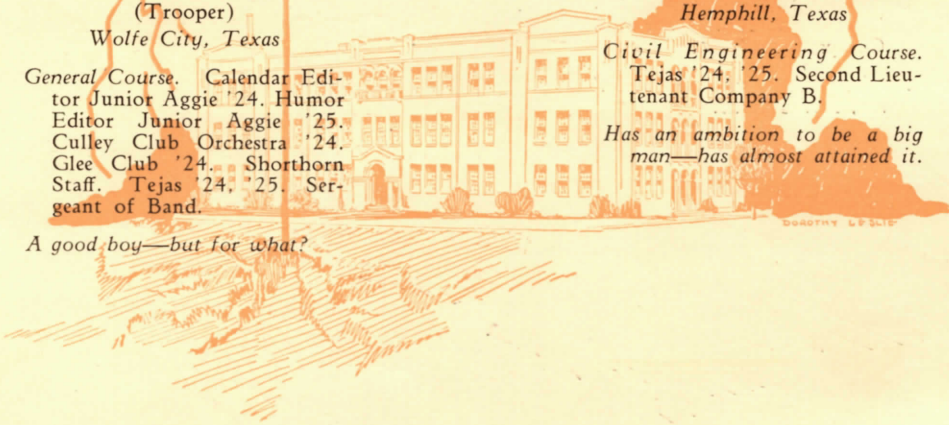 (Trooper)
Wolfe City, Texas
General Course. Calendar Edi-
tor Junior Aggie '24. Humor
Editor Junior Aggie '25.
Culley Club Orchestra '24.
Glee Club '24. Shorthorn
Staff. Tejas '24, '25. Ser-
geant of Band.
A good boy—but for what?
Hemphill, Texas
Civil Engineering Course.
Tejas '24, '25. Second Lieu-
tenant Company B.
Has an ambition to be a big
man—has almost attained it.
DOROTHY LESLIE